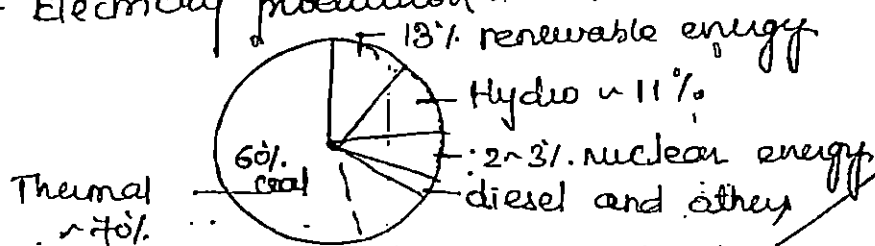 Electricity production
13% renewable energy
Hydro ~ 11%
2~3% nuclear energy
60% coal
diesel and others
Thermal
~70%